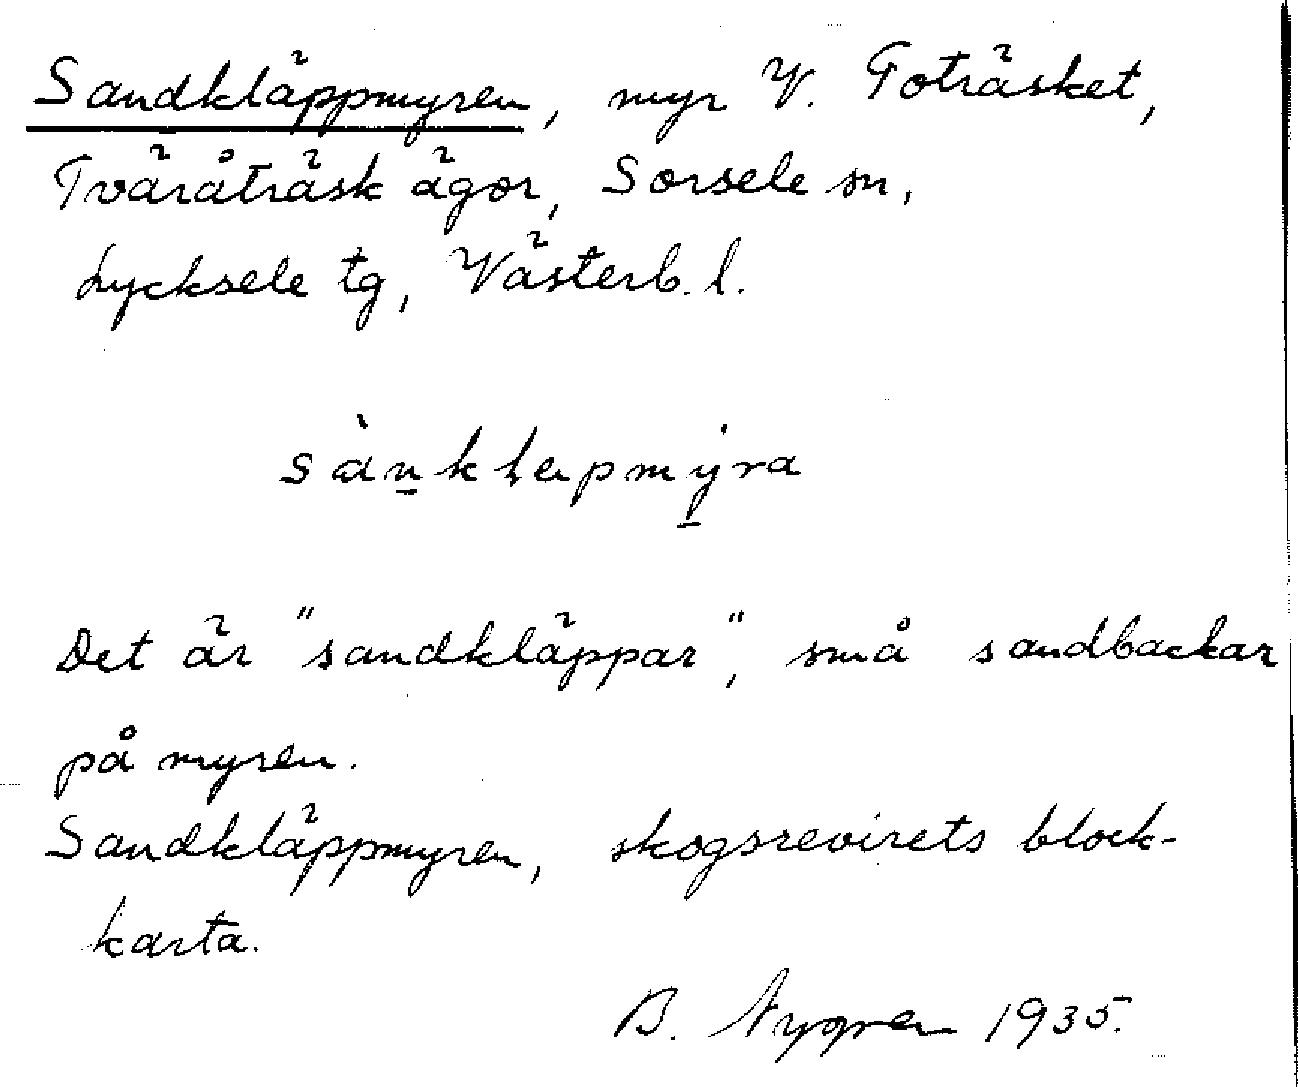 Sandkläppmyren, myr V. Toträsket,
Tväråträsk ägor, Sorsele sn,
Lycksele tg, Västerb. l.
sàn̲klepmẏ̲ra
Det är "sandkläppar", små sandbackar
på myren.
Sandkläppmyren, skogsrevirets block-
karta.
B. Nygren 1935.